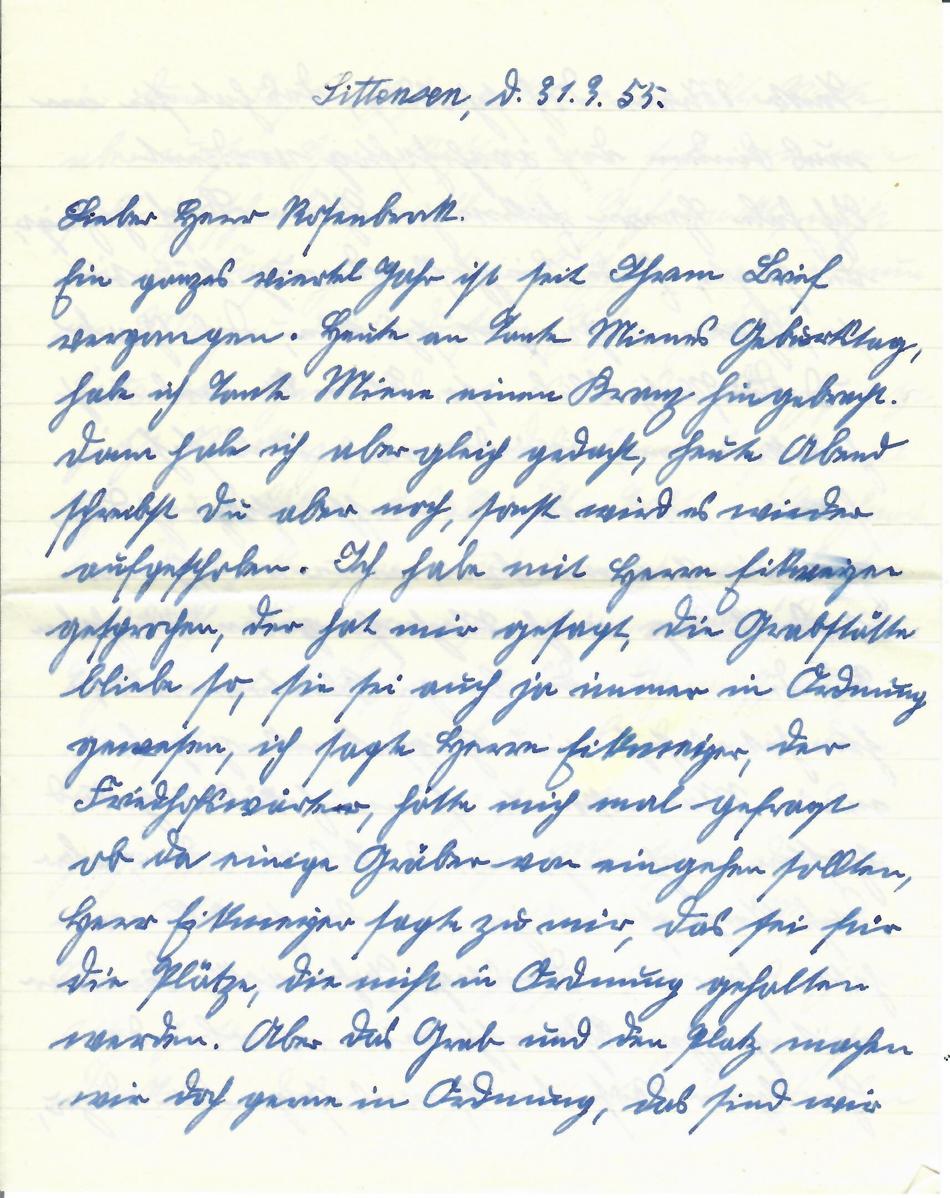 Sittensen, d. 31.3.55.
Lieber Herr Rosenbrock.
Ein ganzes viertel Jahr ist seit Ihrem Brief
vergangen. Heute an Tante Mienes Geburtstag,
habe ich Tante Miene einen Kranz hingebracht.
Dann habe ich aber gleich gedacht, heute Abend
schreibst du aber noch, sonst wird es wieder
aufgeschoben. Ich habe mit Herrn Eikmeyer
gesprochen, der hat mir gesagt, die Grabstätte
bliebe so, sie sei auch ja immer in Ordnung
gewesen, ich sagte Herrn Eikmeyer, der
Friedhofswärter, hätte mich mal gefragt
ob da einige Gräber von eingehen sollten,
Herr Eikmeyer sagte zu mir, das sei für
die Plätze, die nicht in Ordnung gehalten
werden. Aber das Grab und den Platz machen
wir doch gerne in Ordnung, das sind wir